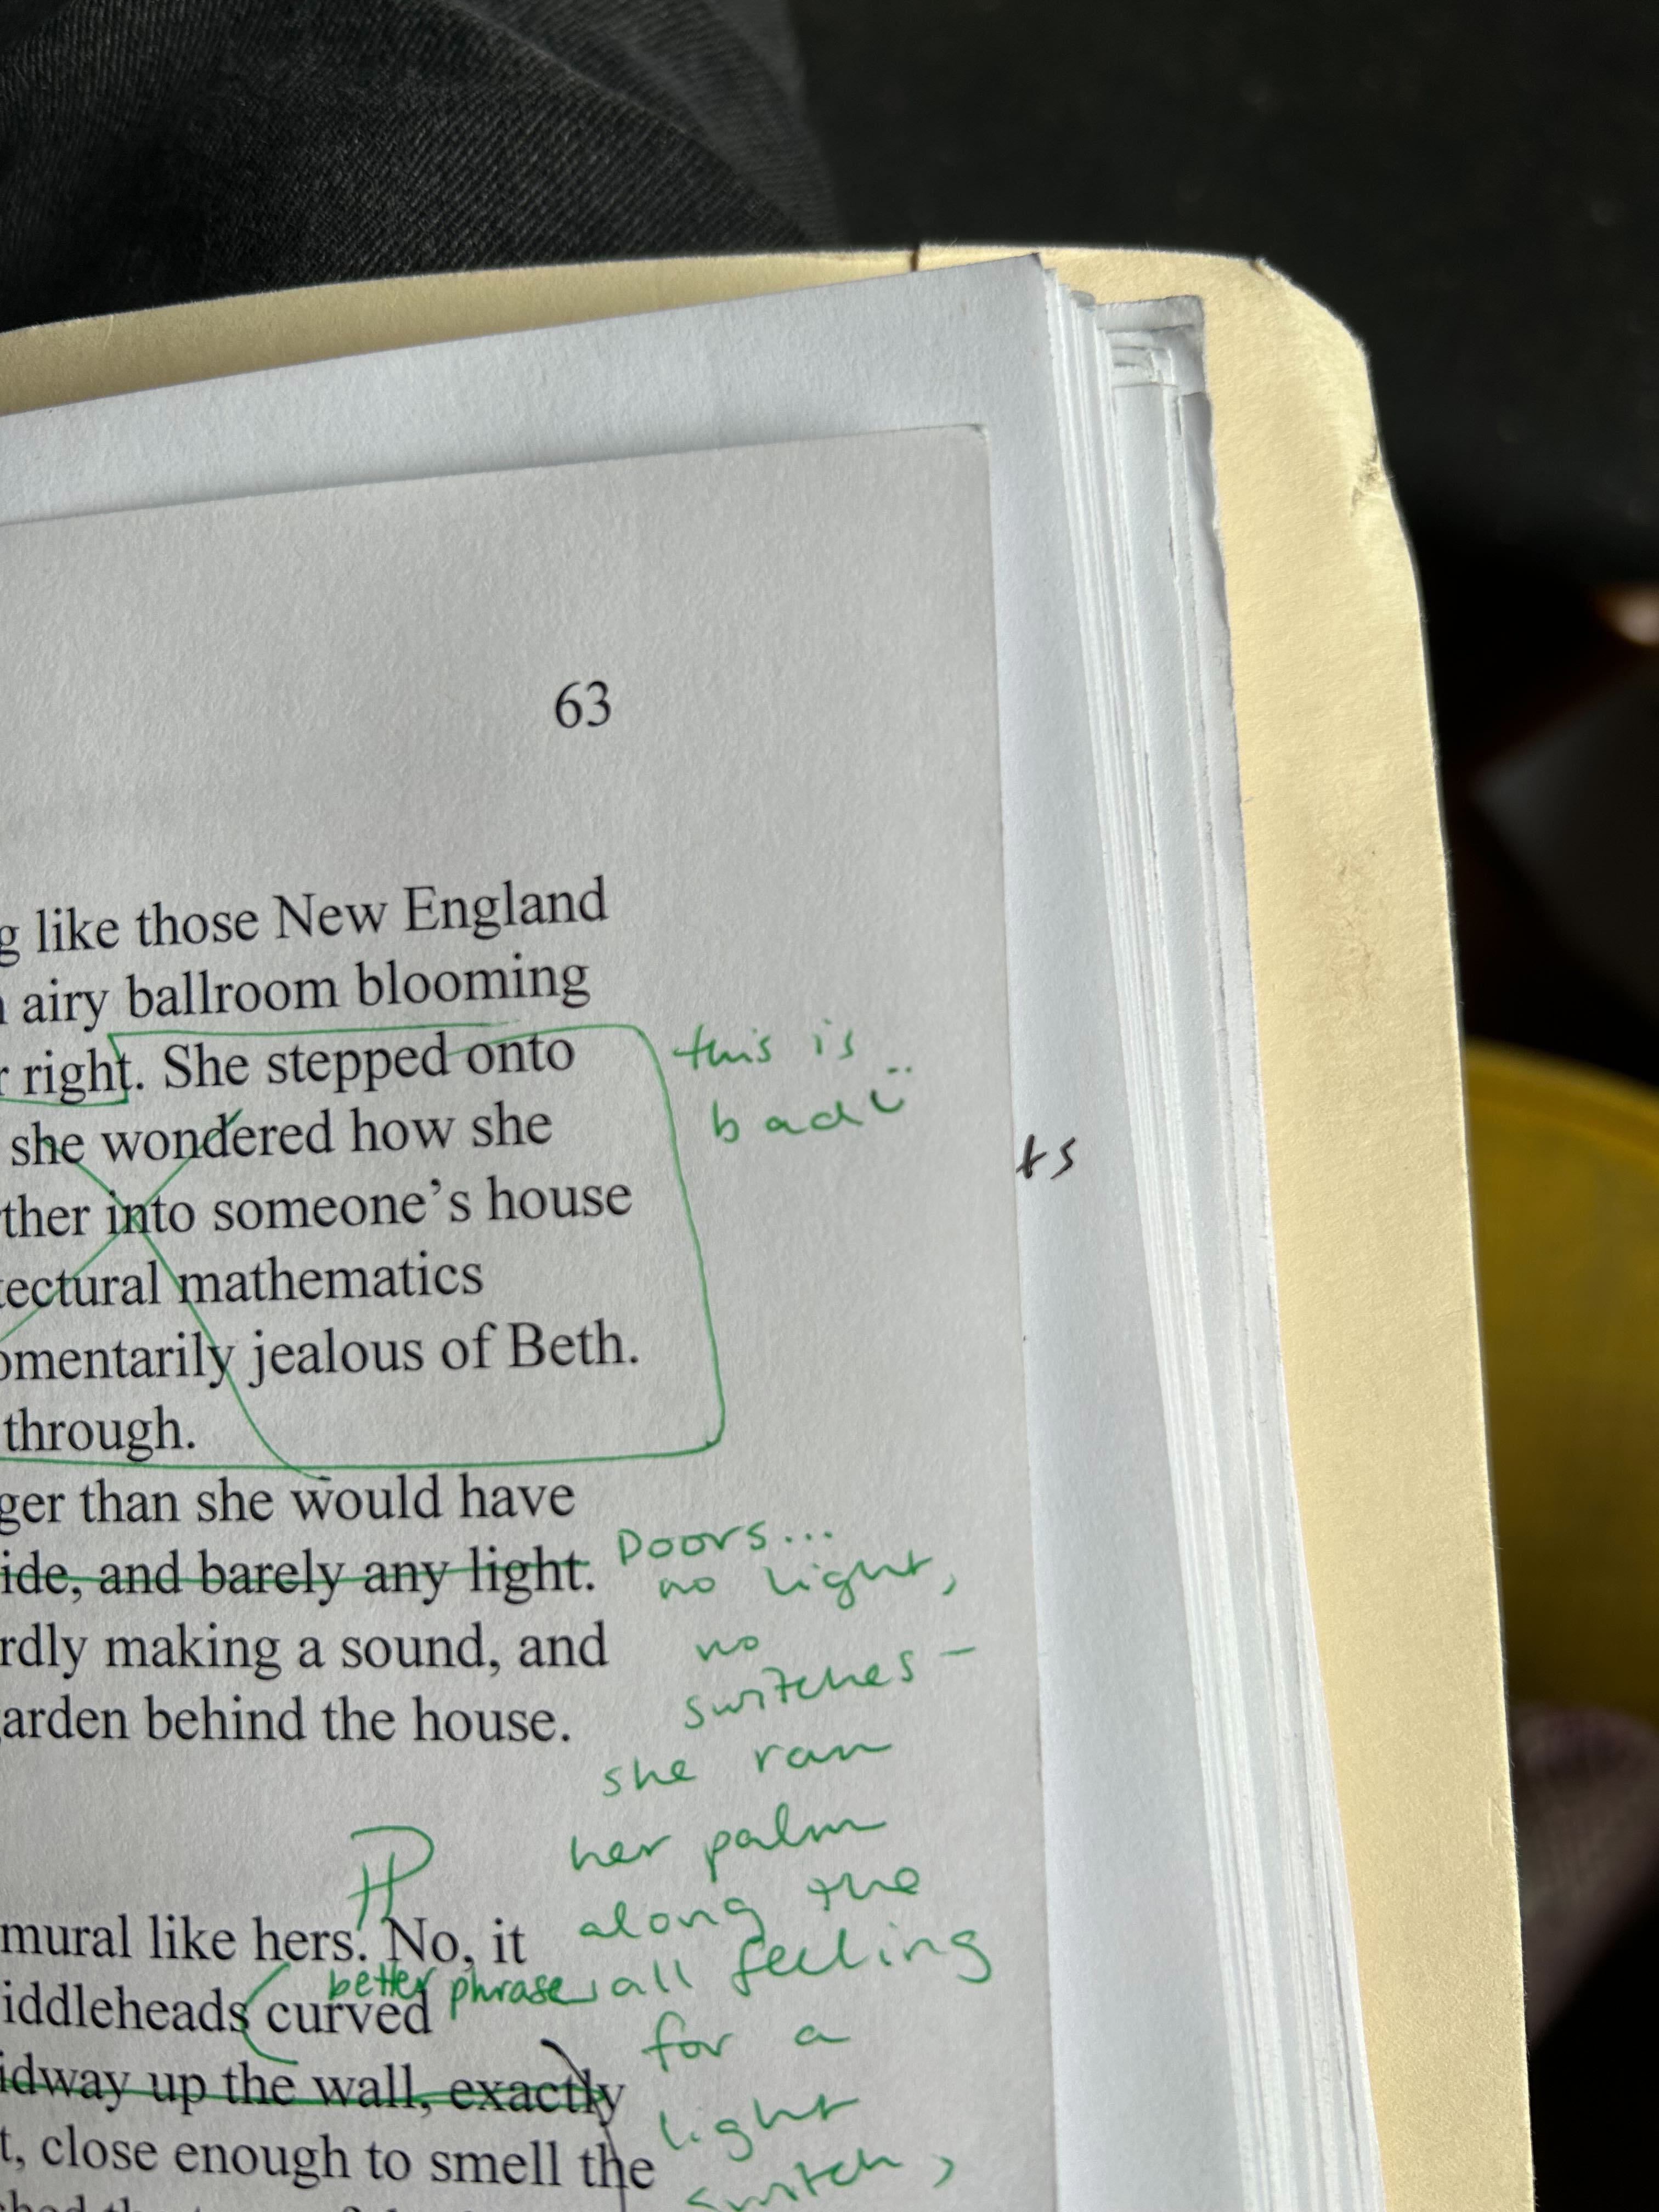 63
g like those New England
airy ballroom blooming
r right. She stepped onto
she wondered how she
ther into someone's house
tectural mathematics
omentarily jealous of Beth.
through.
ger than she would have
ide, and barely any light.
rdly making a sound, and
arden behind the house.
mural like hers. No, it
iddleheads curved
idway up the wall, exactly
t, close enough to smell the
this is
bad
ts
Doors...
no light,
no
switches -
she ran
her palm
along the
wall feeling
for a
light
switch,
better phrase